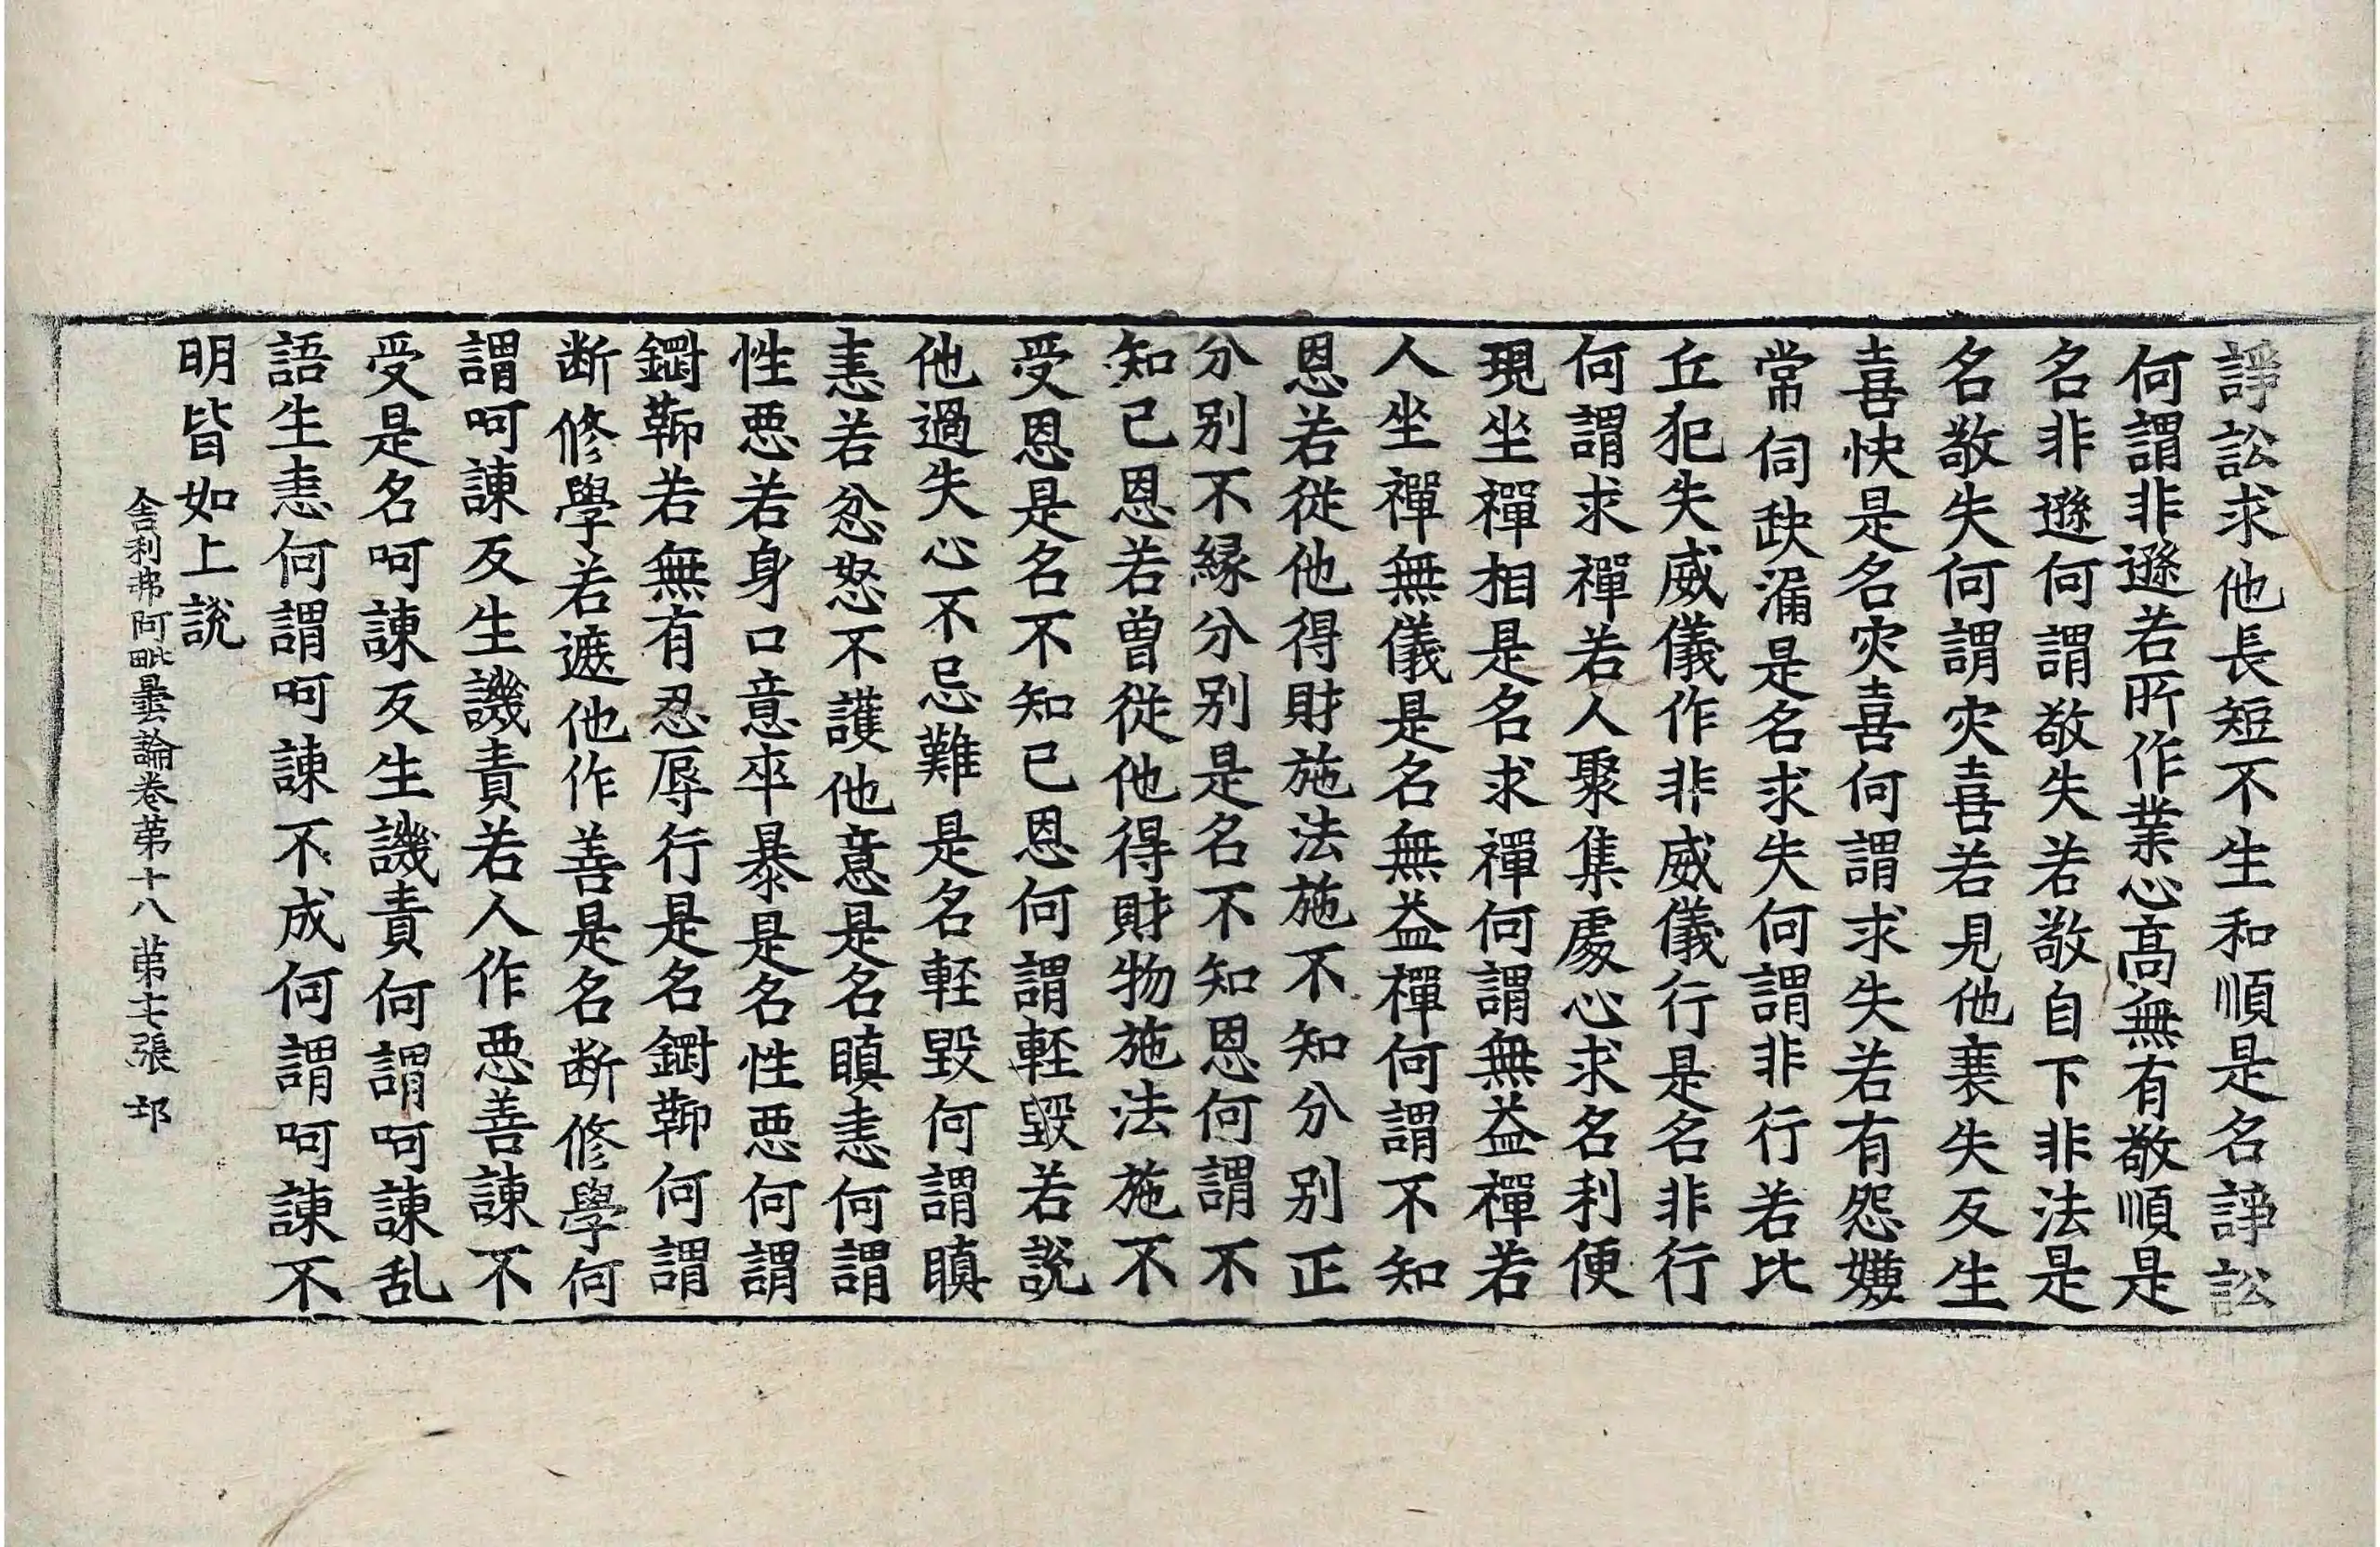 諍訟求他長短不生和順是名諍訟
何謂非遜若所作業心高無有敬順是
名非遜何謂敬失若敬自下非法是
名敬失何謂灾喜若見他衰失反生
喜快是名灾喜何謂求失若有怨嫌
常伺缺漏是名求失何謂非行若比
丘犯失威儀作非威儀行是名非行
何謂求禪若人聚集處心求名利便
現坐禪相是名求禪何謂無益禪若
人坐禪無儀是名無益禪何謂不知
恩若從他得財施法施不知分別正
分別不縁分別是名不知恩何謂不
知已恩若曾從他得財物施法施不
受恩是名不知已恩何謂輕毀若說
他過失心不忌難是名輕毀何謂瞋
恚若忿怒不護他意是名瞋恚何謂
性惡若身口意卒暴是名性惡何謂
鐗鞕若無有忍辱行是名鐗鞕何謂
断修學若遮他作善是名断修學何
謂呵諫反生譏責若人作惡善諫不
受是名呵諫反生譏責何謂呵諫乱
語生恚何謂呵諫不成何謂呵諫不
明皆如上說
舎利弗阿毗曇論卷苐十八 苐七張